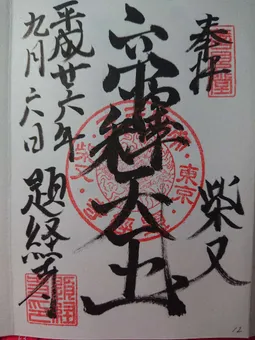 奉拝
柴又
帝釈天王
平成廿六年
九月六日
題経寺
東京
柴又
12